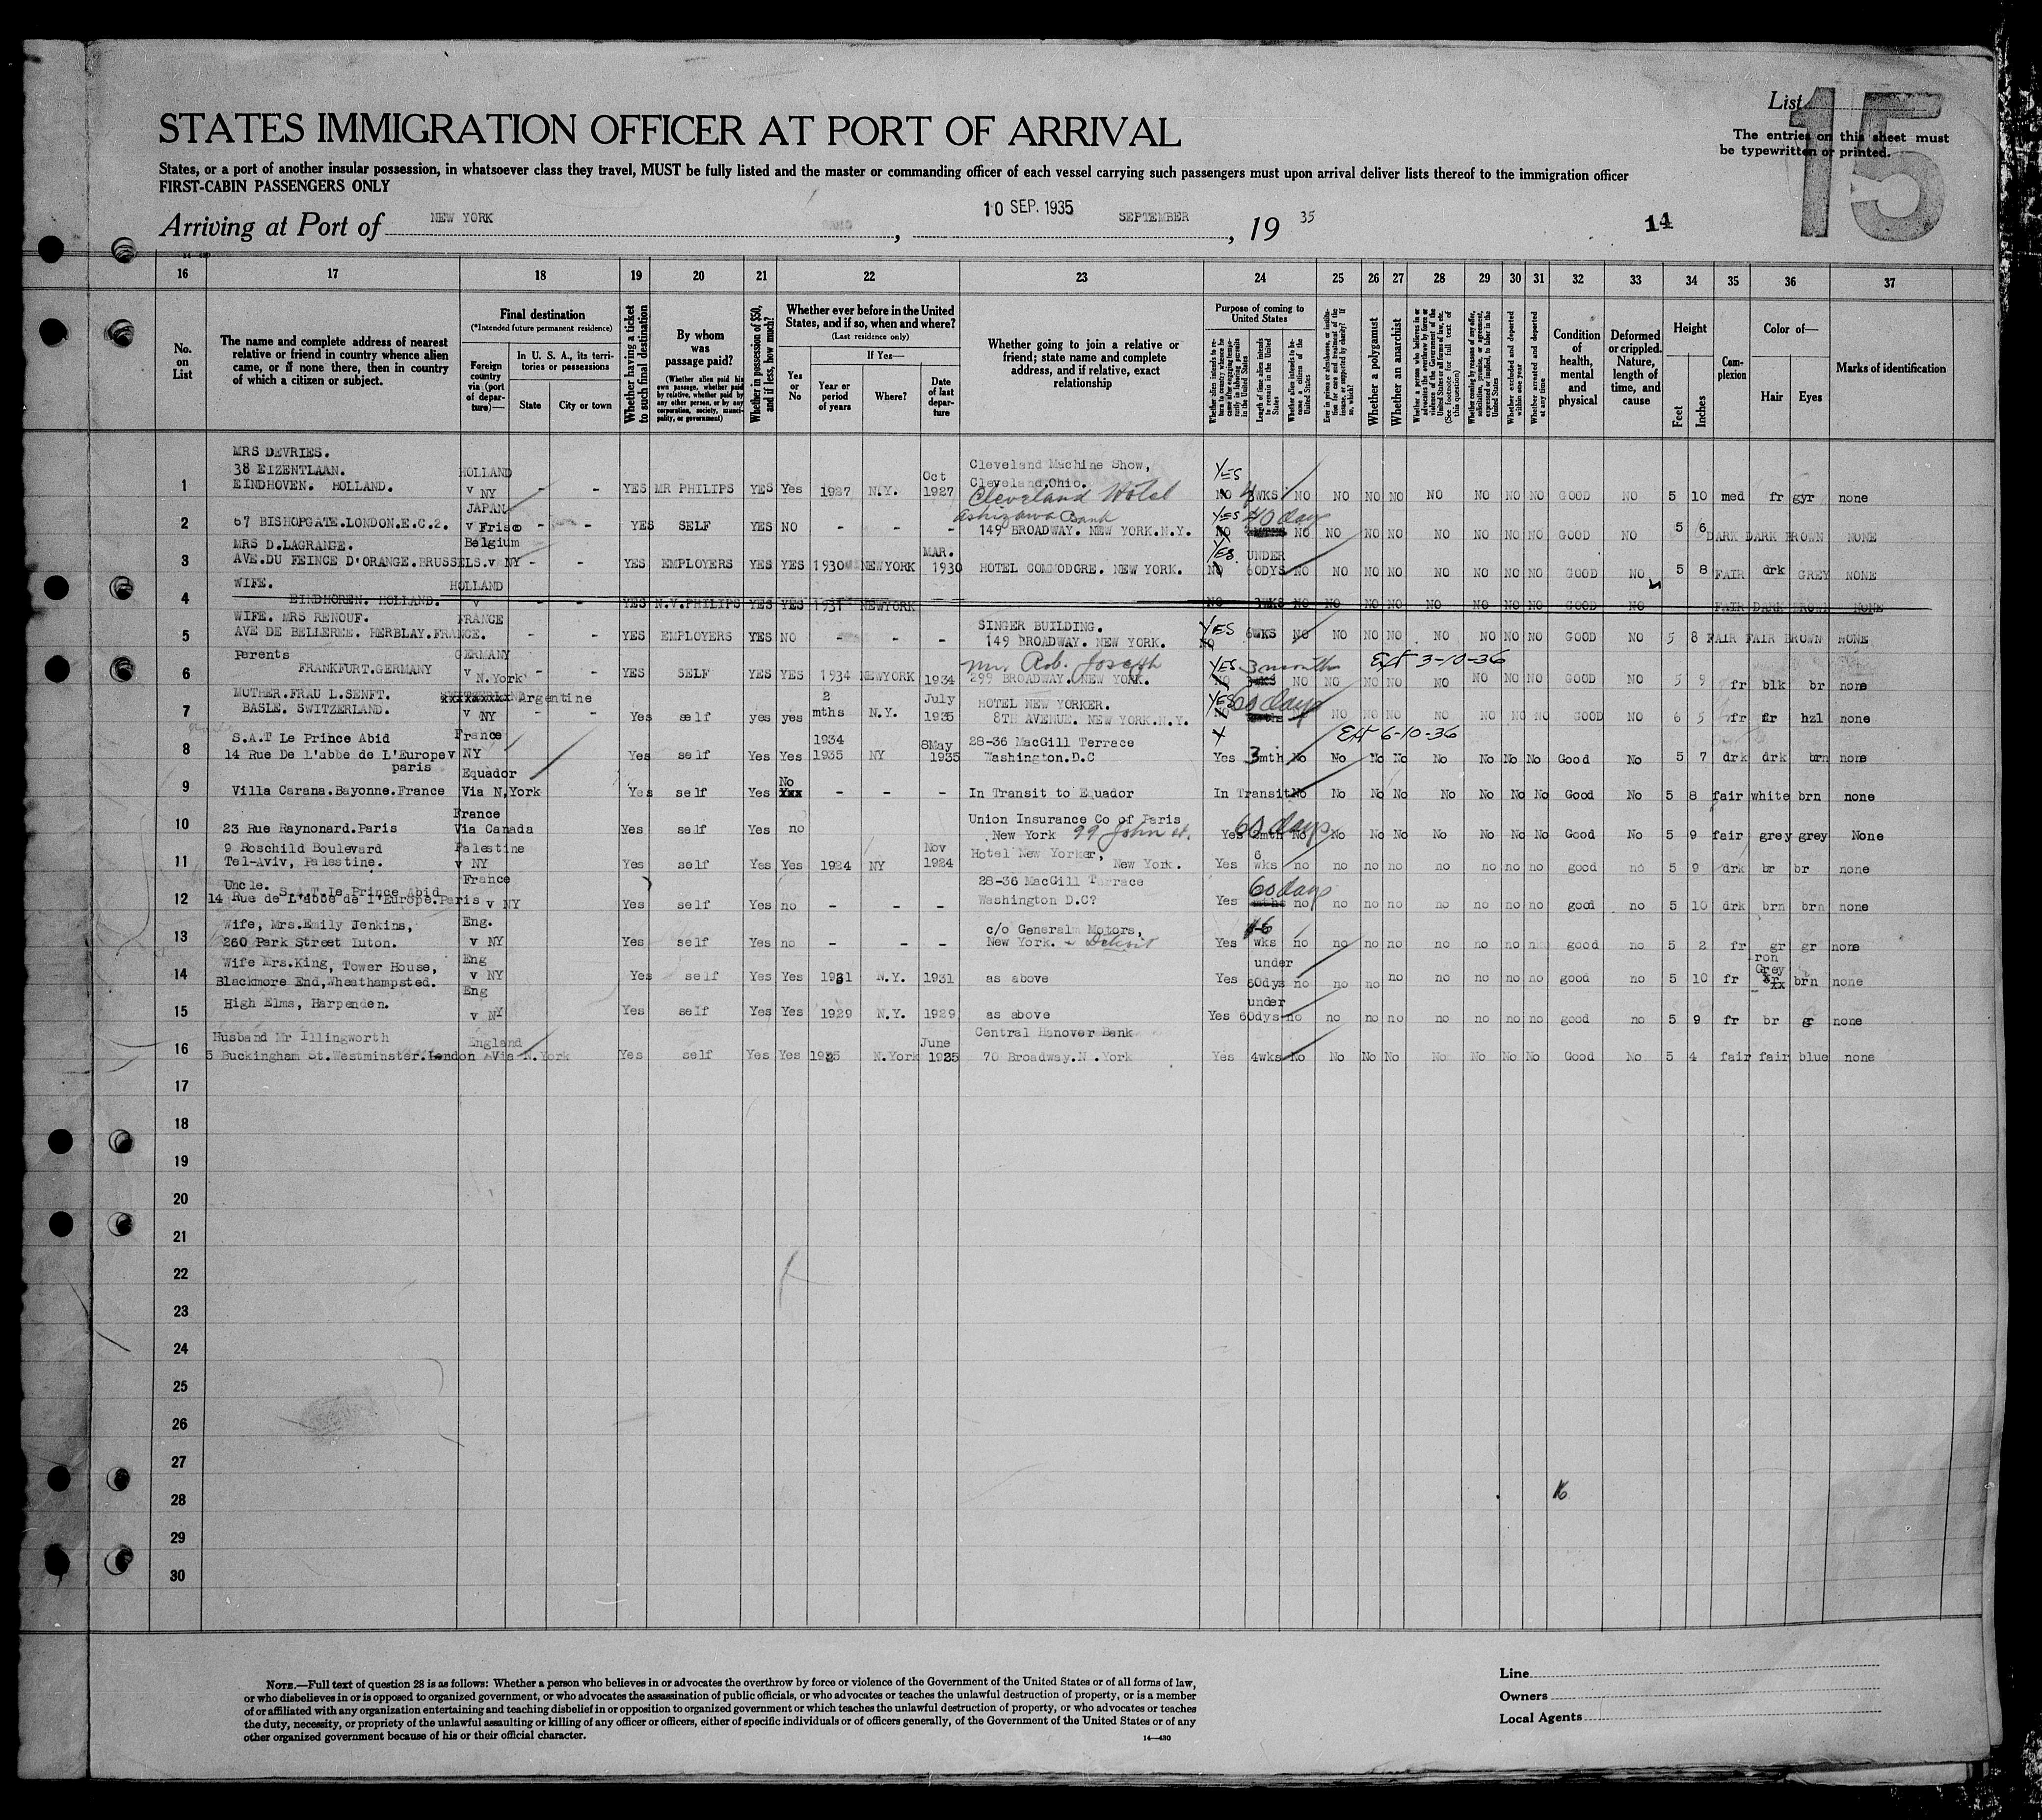 List 15
STATES IMMIGRATION OFFICER AT PORT OF ARRIVAL
The entries on this sheet must
be typewritten or printed.
States, or a port of another insular possession, in whatsoever class they travel, MUST be fully listed and the master or commanding officer of each vessel carrying such passengers must upon arrival deliver lists thereof to the immigration officer
FIRST-CABIN PASSENGERS ONLY
Arriving at Port of NEW YORK, 10 SEP. 1935 SEPTEMBER, 19 35
14
16 17 18 19 20 21 22 23 24 25 26 27 28 29 30 31 32 33 34 35 36 37
No. on List
The name and complete address of nearest relative or friend in country whence alien came, or if none there, then in country of which a citizen or subject.
Final destination
(*Intended future permanent residence)
Foreign country via (port of departure)—
In U. S. A., its territories or possessions
State
City or town
Whether having a ticket to such final destination
By whom was passage paid?
(Whether alien paid his own passage, whether paid by relative, whether paid by any other person, or by any corporation, society, municipality, or government)
Whether in possession of $50, and if less, how much?
Whether ever before in the United States, and if so, when and where?
(Last residence only)
Yes or No
If Yes—
Year or period of years
Where?
Date of last departure
Whether going to join a relative or friend; state name and complete address, and if relative, exact relationship
Purpose of coming to United States
Length of time alien intends to remain in the United States
Whether alien intends to become a citizen of the United States
Whether a polygamist
Whether an anarchist
(See footnote for full text of this question)
Whether excluded and deported within one year
Whether arrested and deported at any time
Condition of health, mental and physical
Deformed or crippled. Nature, length of time, and cause
Height
Feet
Inches
Complexion
Color of—
Hair
Eyes
Marks of identification
MRS DEVRIES.
38 EIZENTLAAN. HOLLAND Oct Cleveland Machine Show, YES
1 EINDHOVEN. HOLLAND. v NY - - YES MR PHILIPS YES Yes 1927 N.Y. 1927 Cleveland.Ohio. Cleveland Hotel NO WKS NO NO NO NO NO NO NO NO GOOD NO 5 10 med fr gyr none
JAPAN Ashizawa Bank YES 40 day
2 67 BISHOPGATE.LONDON.E.C.2. v Frisco - - YES SELF YES NO - - - 149 BROADWAY. NEW YORK.N.Y. NO NO NO NO NO NO NO NO NO GOOD NO 5 6 DARK DARK BROWN NONE
MRS D.LAGRANGE. Belgium MAR. YES UNDER
3 AVE.DU FEINCE D'ORANGE.BRUSSELS. v NY - - YES EMPLOYERS YES YES 1930 NEWYORK 1930 HOTEL COMMODORE. NEW YORK. NO 60DYS NO NO NO NO NO NO NO NO GOOD NO 5 8 FAIR drk GREY NONE
WIFE. HOLLAND
4 EINDHOREN. HOLLAND. v - - YES N.V.PHILIPS YES YES 1931 NEWYORK NO 3WKS NO NO NO NO NO NO NO NO GOOD NO FAIR DARK BROWN NONE
WIFE. MRS RENOUF. FRANCE SINGER BUILDING. YES
5 AVE DE BELLEREE. HERBLAY.FRANCE. - - YES EMPLOYERS YES NO - - - 149 BROADWAY. NEW YORK. NO 6WKS NO NO NO NO NO NO NO NO GOOD NO 5 8 FAIR FAIR BROWN NONE
Parents GERMANY Rob. Joseph YES 3 month Ext 3-10-36
6 FRANKFURT.GERMANY v N.York - - YES SELF YES YES 1934 NEWYORK 1934 299 BROADWAY. NEW YORK. NO 3WKS NO NO NO NO NO NO NO NO GOOD NO 5 9 fr blk br none
MOTHER.FRAU L.SENFT. Argentine 2 July HOTEL NEW YORKER. YES 60 days
7 BASLE. SWITZERLAND. v NY - - Yes self yes yes mths N.Y. 1935 8TH AVENUE. NEW YORK.N.Y. NO NO NO NO NO NO NO NO GOOD NO 6 5 fr fr hzl none
S.A.T Le Prince Abid France 1934 8May 28-36 MacGill Terrace Ext 6-10-36
8 14 Rue De L'abbe de L'Europe v NY Yes self Yes Yes 1935 NY 1935 Washington.D.C Yes 3mth No No No No No No No No Good No 5 7 drk drk brn none
paris
Equador No
9 Villa Carana.Bayonne.France Via N.York Yes self Yes xxx - - - In Transit to Equador In Transit No No No No No No No No Good No 5 8 fair white brn none
France Union Insurance Co of Paris 60 days
10 23 Rue Raynonard.Paris Via Canada Yes self Yes no New York 99 John st. Yes 2mth No No No No No No No No Good No 5 9 fair grey grey None
9 Roschild Boulevard Palestine Nov Hotel New Yorker, 6
11 Tel-Aviv, Palestine. v NY Yes self Yes Yes 1924 NY 1924 New York. Yes wks no no no no no no no no good no 5 9 drk br br none
Uncle. S.A.T.Le Prince Abid France 28-36 MacGill Terrace 60 days
12 14 Rue de L'abbe de l'Europe.Paris v NY Yes self Yes no - - - Washington D.C? Yes no no no no no no no no good no 5 10 drk brn brn none
Wife, Mrs.Emily Jenkins, Eng. c/o Generalm Motors, 6
13 260 Park Street Iuton. v NY Yes self Yes no - - New York. Detroit Yes wks no no no no no no no good no 5 2 fr gr gr none
Wife Mrs.King, Tower House, Eng under Iron Grey
14 Blackmore End,Wheathampsted. v NY Yes self Yes Yes 1931 N.Y. 1931 as above Yes 60dys no no no no no no no no good no 5 10 fr xx brn none
Eng under
15 High Elms, Harpenden. v NY Yes self Yes Yes 1929 N.Y. 1929 as above Yes 60dys no no no no no no no no good no 5 9 fr br gr none
Husband Mr Illingworth England June Central Hanover Bank
16 5 Buckingham St.Westminster.London Via N.York Yes self Yes Yes N.York 70 Broadway.N.York Yes 4wks No No No No No No No No Good No 5 4 fair fair blue none
17
18
19
20
21
22
23
24
25
26
27
28 16
29
30
NOTE.—Full text of question 28 is as follows: Whether a person who believes in or advocates the overthrow by force or violence of the Government of the United States or of all forms of law,
or who disbelieves in or is opposed to organized government, or who advocates the assassination of public officials, or who advocates or teaches the unlawful destruction of property, or is a member
of or affiliated with any organization entertaining and teaching disbelief in or opposition to organized government or which teaches the unlawful destruction of property, or who advocates or teaches
the duty, necessity, or propriety of the unlawful assaulting or killing of any officer or officers, either of specific individuals or of officers generally, of the Government of the United States or of any
other organized government because of his or their official character.
14—430
Line
Owners
Local Agents